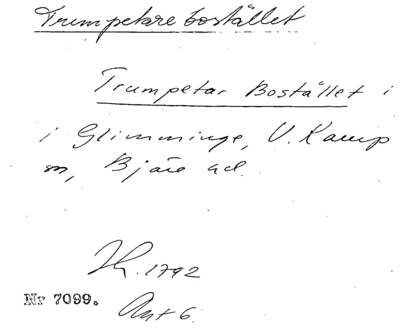 Trumpetare bostället
Trumpetar Bostället i
i Glimminge, V. Karup
sn, Bjäre hd.
Jh. 1792
Nr 7099.
Ant 6.